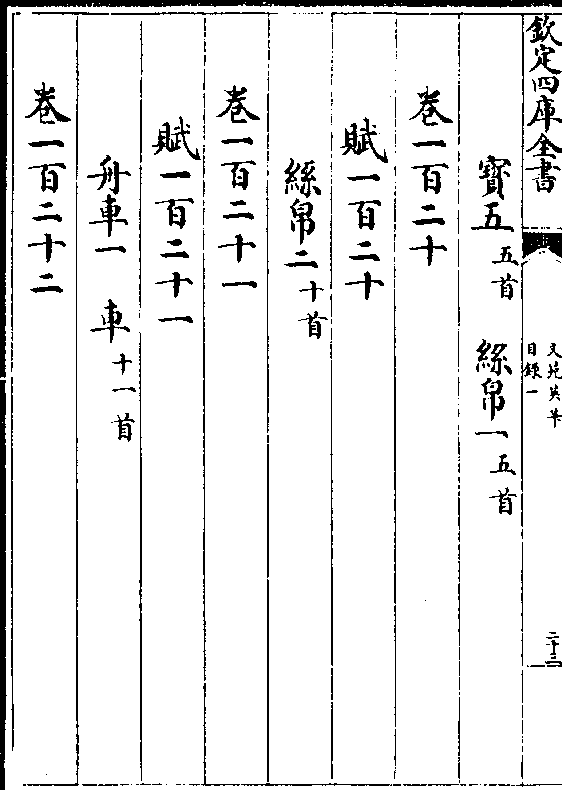 欽定四庫全書
文苑英華
目錄一
二十三
寶五五首 絲帛一五首
卷一百二十
賦一百二十
絲帛二十首
卷一百二十一
賦一百二十一
舟車一 車十一首
卷一百二十二